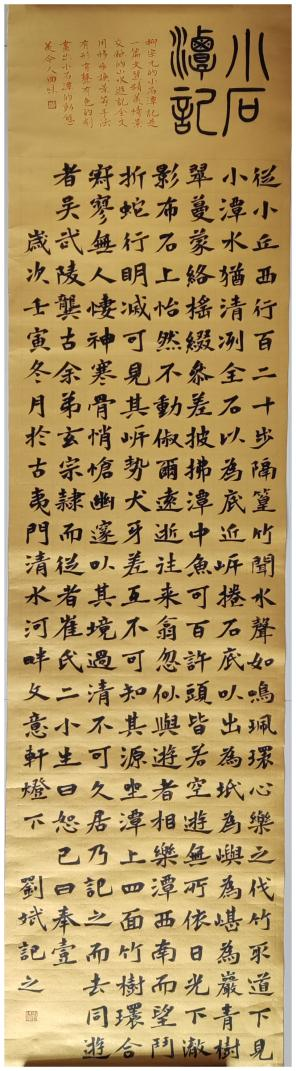 小石
潭記
柳宗元的小石潭記是
一篇文質精美情景
交融的山水遊記全文
用移步換景的手法
有形有聲有色的刻
畫出小石潭的動態
美令人回味
從小丘西行百二十步隔篁竹聞水聲如鳴珮環心樂之伐竹取道下見
小潭水猶清冽全石以為底近岸捲石底以出為坻為嶼為嵁為巖青樹
翠蔓蒙絡搖綴參差披拂潭中魚可百許頭皆若空遊無所依日光下澈
影布石上怡然不動俶爾遠逝往来翕忽似與遊者相樂潭西南而望鬥
折蛇行明滅可見其岸勢犬牙差互不可知其源坐潭上四面竹樹環合
寂寥無人悽神寒骨悄愴幽邃以其境過清不可久居乃記之而去同遊
者吴武陵龔古余弟玄宗隸而從者崔氏二小生曰恕己曰奉壹
歲次壬寅冬月於古夷門清水河畔文意軒燈下 劉斌記之